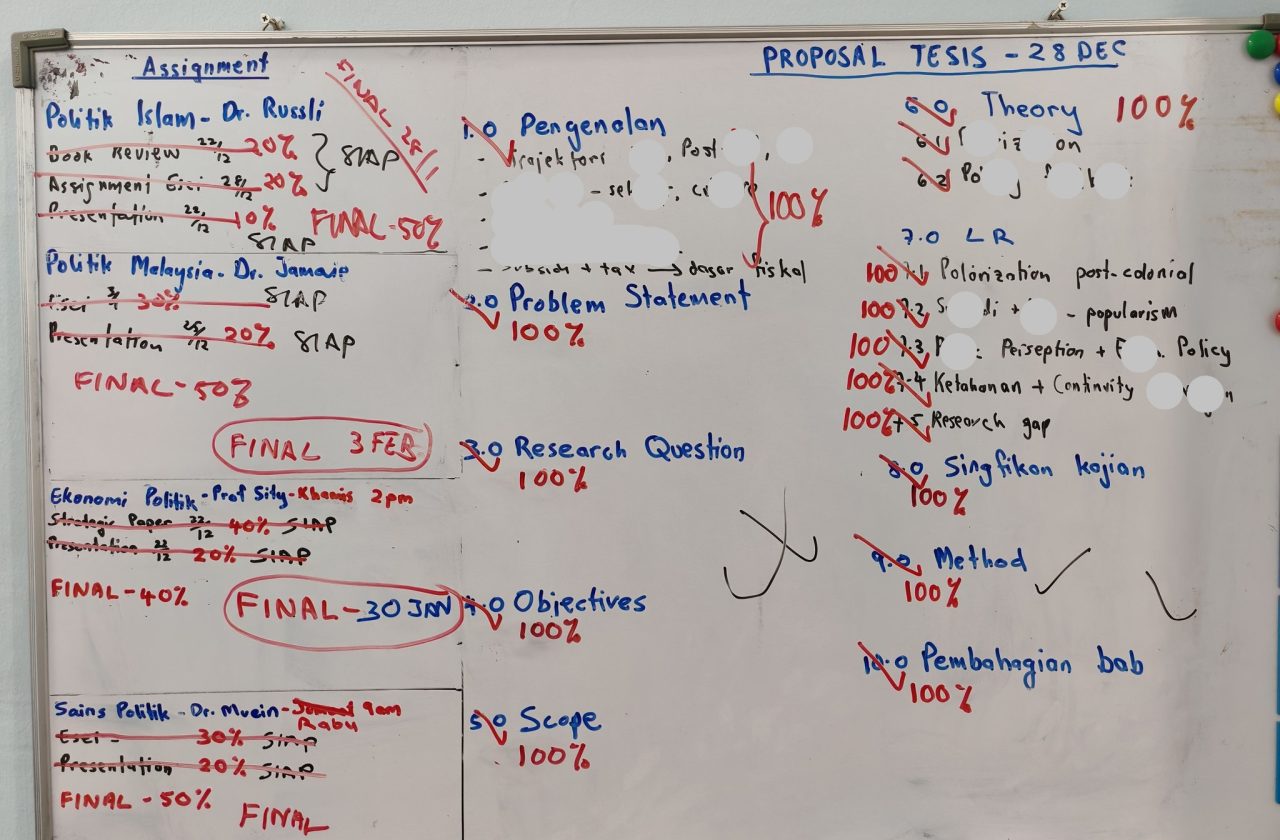 Assignment
Politik Islam - Dr. Russli
Book Review 22/12 20%
Assignment Esei 28/12 20%
SIAP
Presentation 22/12 10%
SIAP
FINAL - 50%
FINAL 28/1
Politik Malaysia - Dr. Jamaie
Esei 30% SIAP
Presentation 20% SIAP
FINAL - 50%
FINAL 3 FEB
Ekonomi Politik - Prof Sity - Khamis 2pm
Strategic Paper 22/12 40% SIAP
Presentation 22/12 20% SIAP
FINAL - 40%
FINAL - 30 JAN
Sains Politik - Dr. Muein - Jumaat 9am
Rabu
Esei - 30% SIAP
Presentation 20% SIAP
FINAL - 50%
FINAL
PROPOSAL TESIS - 28 DEC
1.0 Pengenalan
- Trajektori , Post ,
-
100%
-
- subsidi + tax → dasar fiskal
2.0 Problem Statement
100%
3.0 Research Question
100%
4.0 Objectives
100%
5.0 Scope
100%
6.0 Theory 100%
6.1
6.2
7.0 LR
100 7.1 Polorization post-colonial
100 7.2 + - popularism
100 7.3 Perseption + Policy
100% 7.4 Ketahanan + Continuity
100% 7.5 Research gap
8.0 Singfikon kajian
100%
9.0 Method
100%
10.0 Pembahagian bab
100%